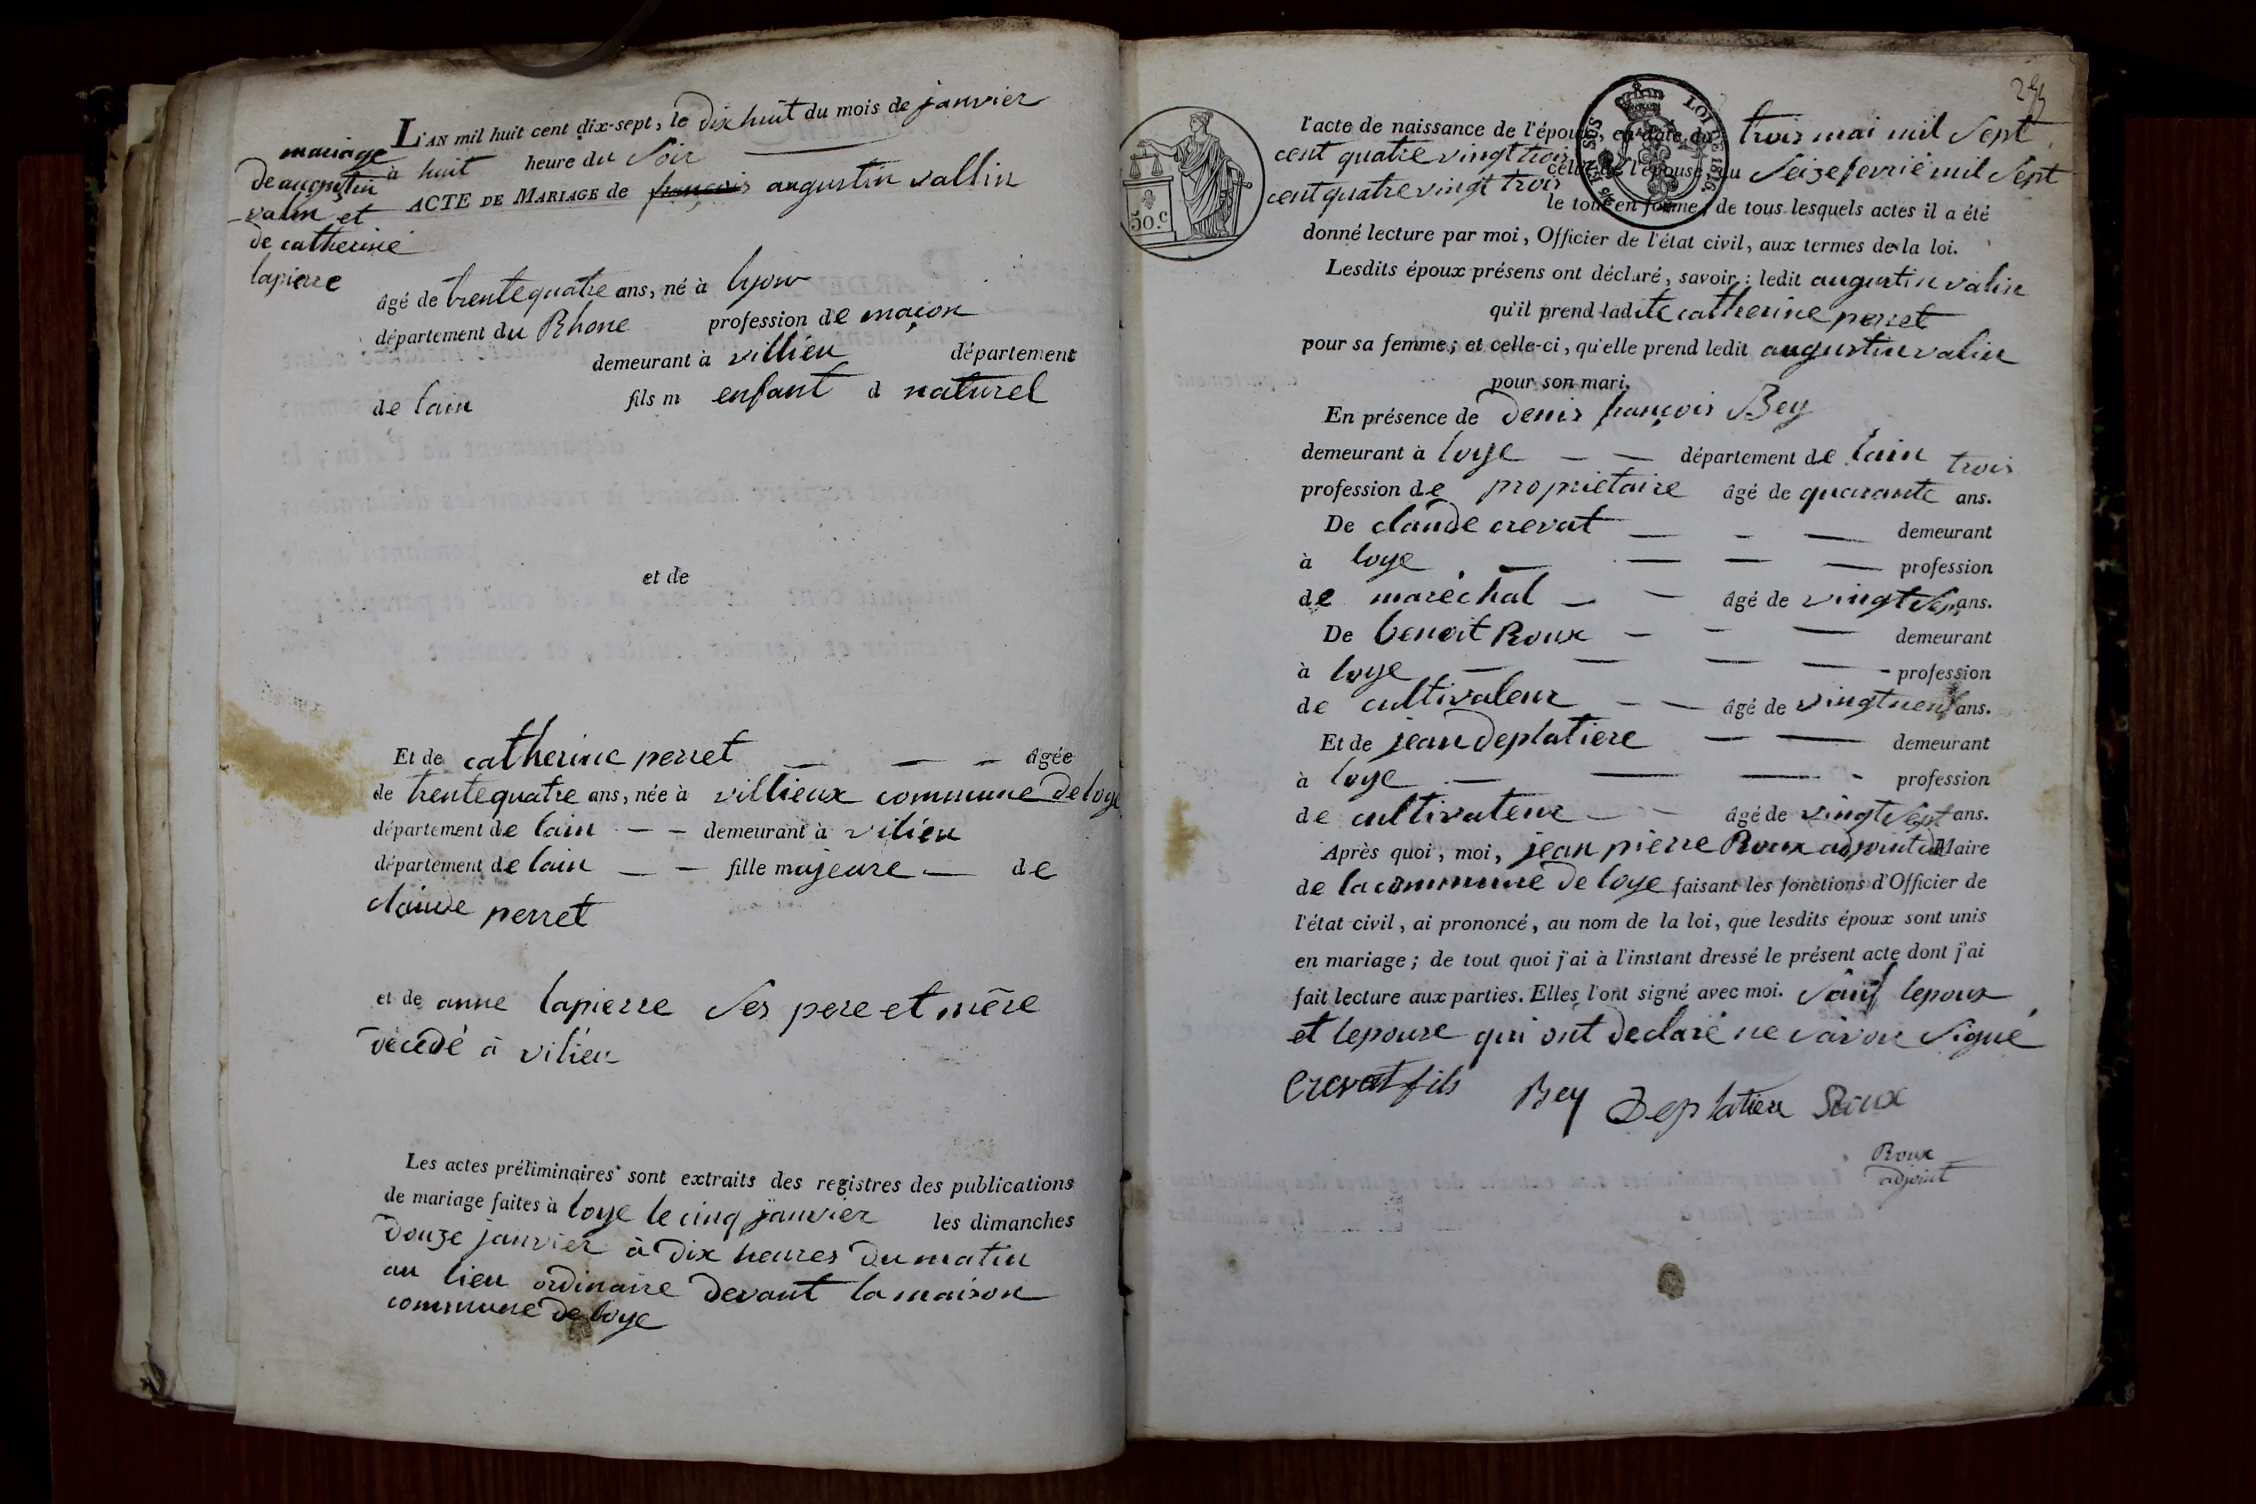 L'AN mil huit cent dix-sept, le dix huit du mois de janvier
à huit heure du soir
ACTE DE MARIAGE de françois augustin vallin
mariage
de augustin
valin et
de catherine
lapierre
âgé de trente quatre ans, né à lyon
département du Rhone profession de maçon
demeurant à villieu département
de lain fils m enfant d naturel
et de
Et de catherine perret âgée
de trente quatre ans, née à villieux commune de loye
département de lain demeurant à vilieu
département de lain fille majeure de
claude perret
et de anne lapierre ses pere et mère
décédé à vilieu
Les actes préliminaires sont extraits des registres des publications
de mariage faites à loye le cinq janvier les dimanches
douze janvier à dix heures du matin
au lieu ordinaire devant la maison
commune de loye
l'acte de naissance de l'époux, en date du trois mai mil sept
cent quatre vingt trois
celui de l'épouse, du seize fevrié mil sept
cent quatre vingt trois
le tout en forme; de tous lesquels actes il a été
donné lecture par moi, Officier de l'état civil, aux termes de la loi.
Lesdits époux présens ont déclaré, savoir: ledit augustin valin
qu'il prend ladite catherine perret
pour sa femme; et celle-ci, qu'elle prend ledit augustin valin
pour son mari.
En présence de denis françois Bey
demeurant à loye département de lain
profession de proprietaire âgé de quarante trois ans.
De claude crevat demeurant
à loye profession
de maréchal âgé de vingt sep ans.
De benoit Roux demeurant
à loye profession
de cultivateur âgé de vingt neuf ans.
Et de jean deplatiere demeurant
à loye profession
de cultivateur âgé de vingt sept ans.
Après quoi, moi, jean pierre Roux adjoint Maire
de la commune de loye faisant les fonctions d'Officier de
l'état civil, ai prononcé, au nom de la loi, que lesdits époux sont unis
en mariage; de tout quoi j'ai à l'instant dressé le présent acte dont j'ai
fait lecture aux parties. Elles l'ont signé avec moi. sauf lepoux
et lepouse qui ont declaré ne savoir signé
Crevat fils Bey Deplatiere Roux
Roux
adjoint
50 c.
LOI DE 1816.